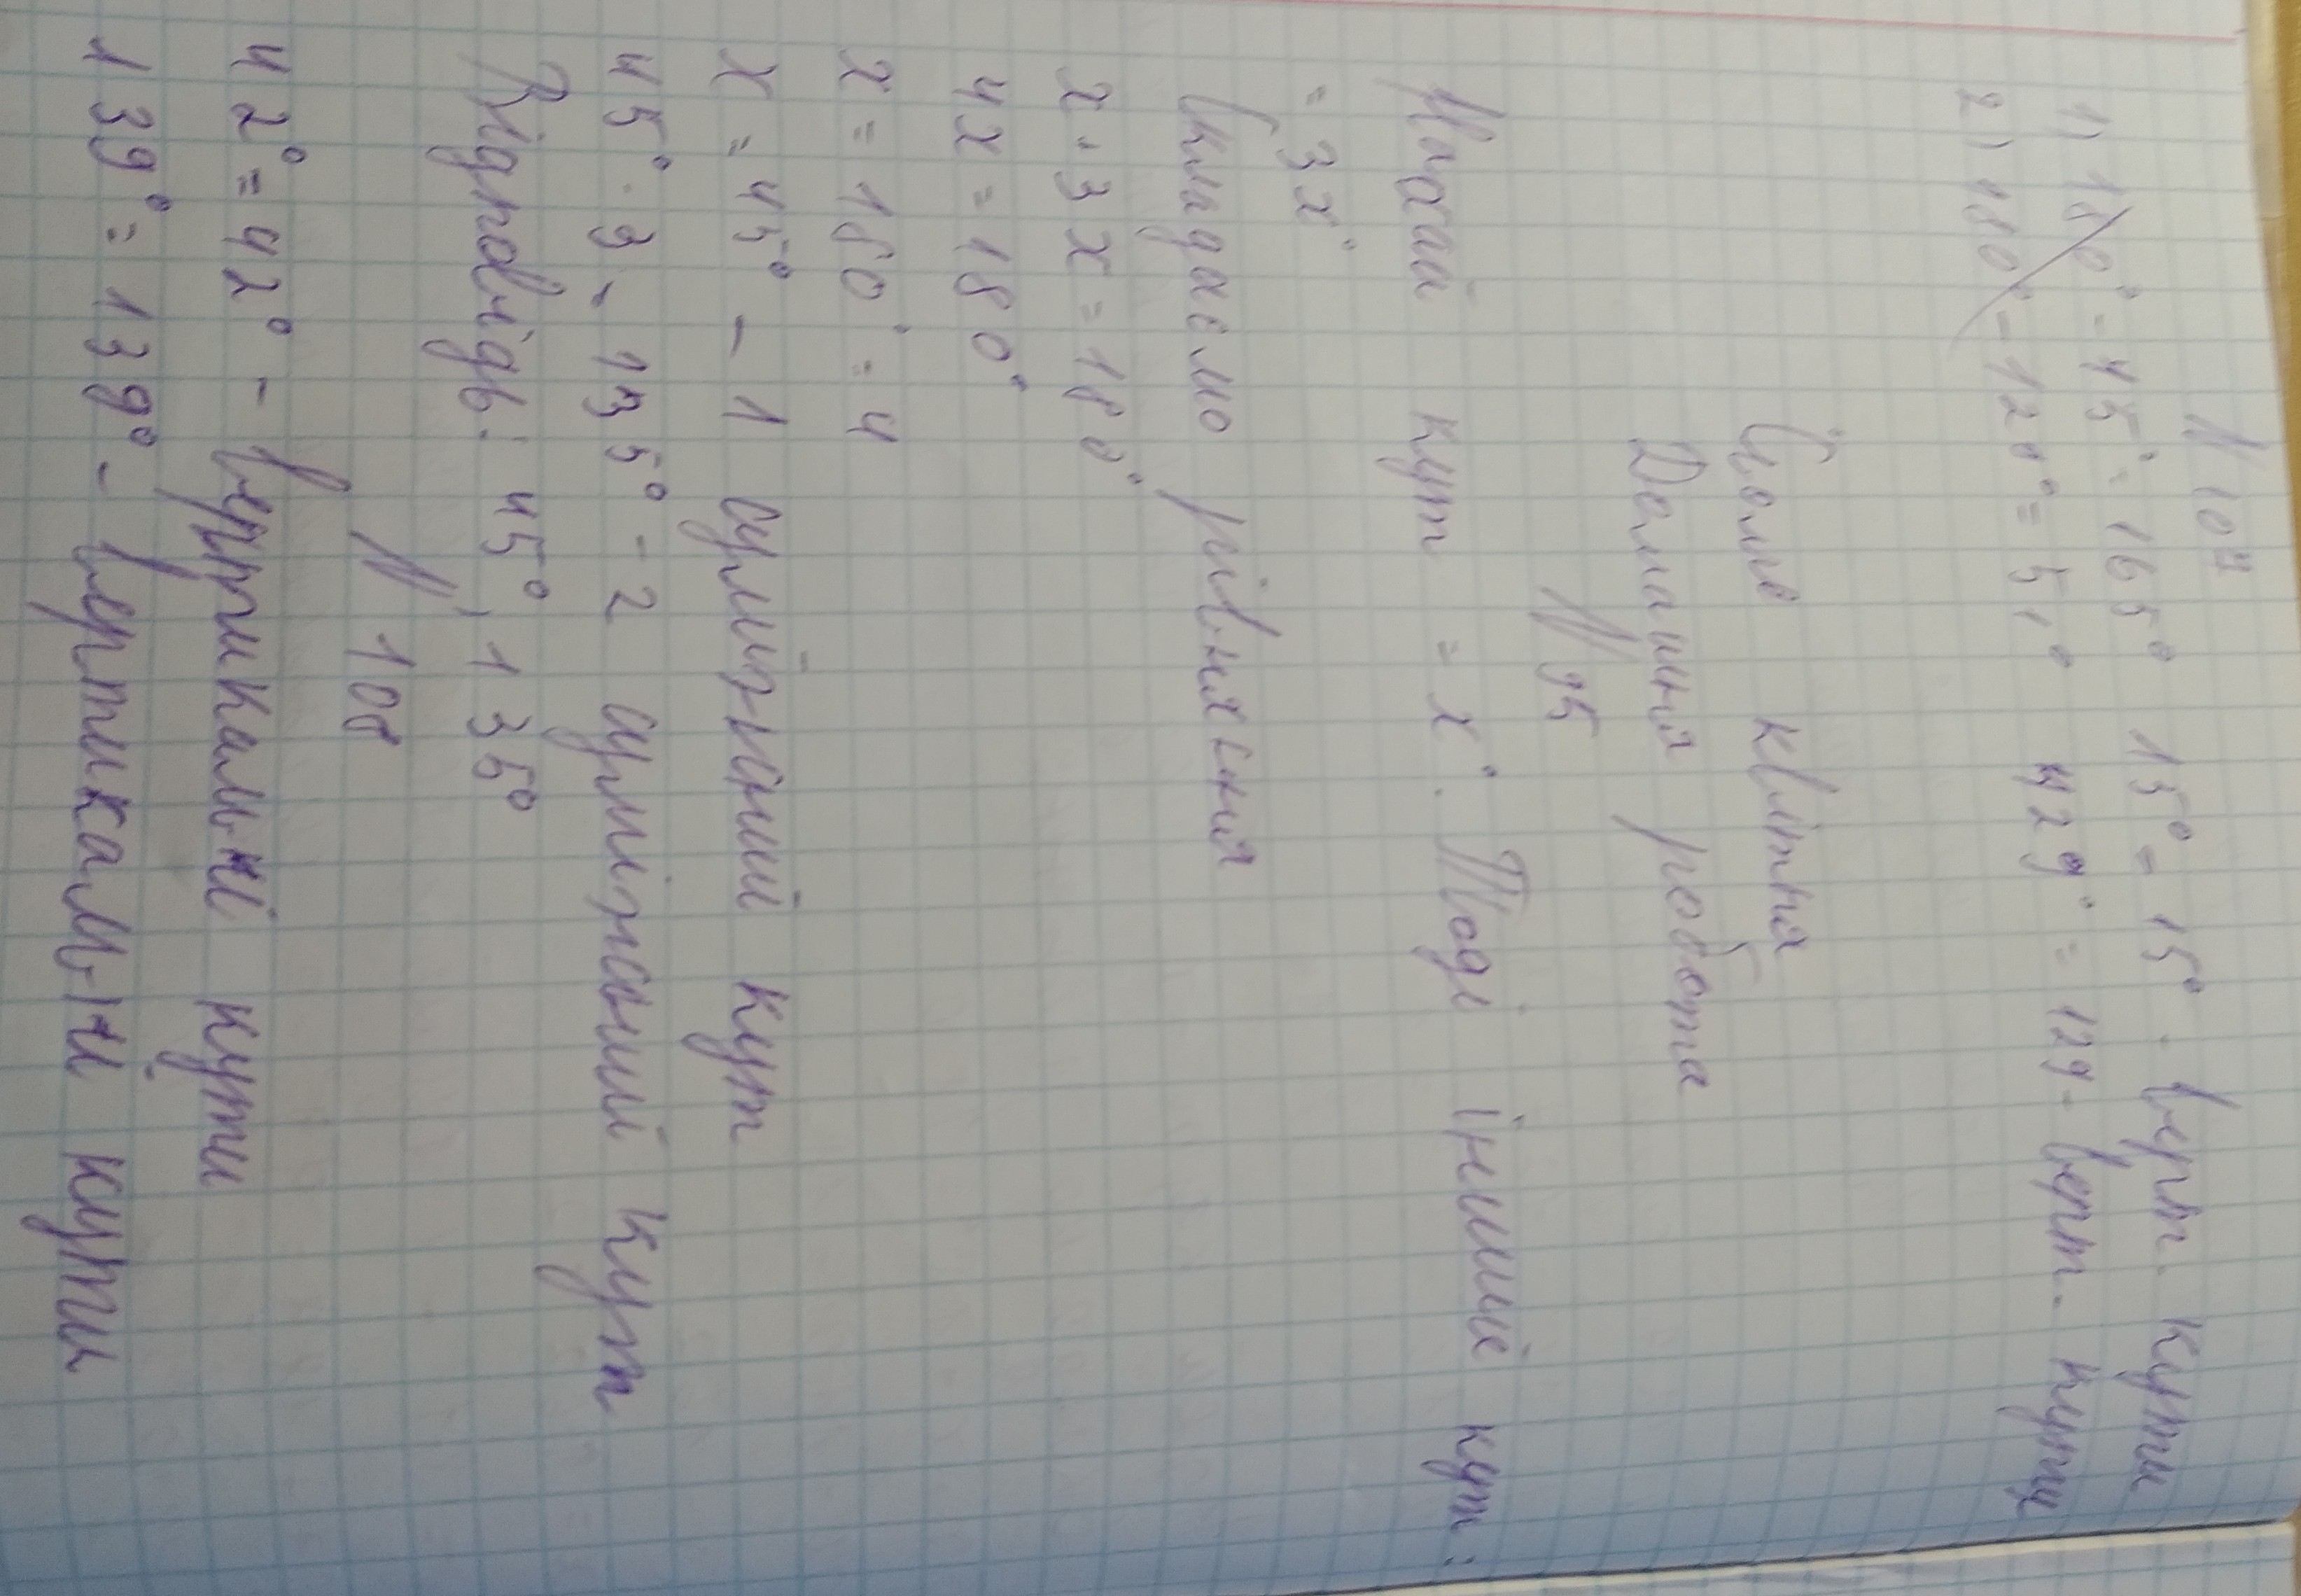 N 107
1) 180° - 45° = 165° 15° = 15° - верт. кути
2) 180° - 120° = 51° 129° = 129 - верт. кути
Сьоме квітня
Домашня робота
N 95
Нехай кут = x°. Тоді інший кут:
= 3x°
Складаємо рівняння
x + 3x = 180°
4x = 180°
x = 180° : 4
x = 45° - 1 суміжний кут
45° · 3 = 135° - 2 суміжний кут
Відповідь: 45°, 135°
N 108
42° = 42° - вертикальні кути
139° = 139° - вертикальні кути